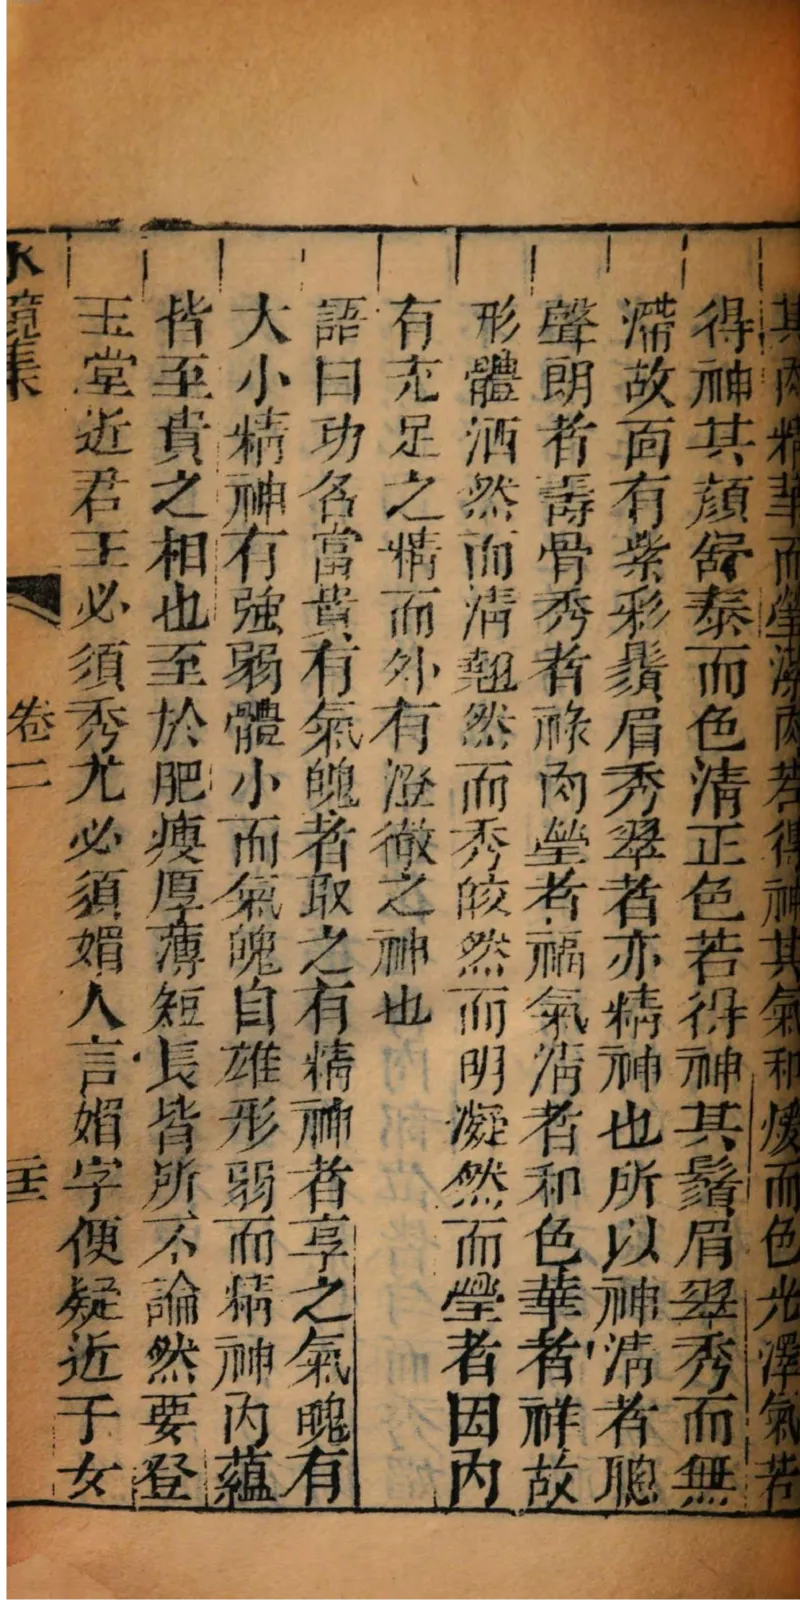 其肉精華而瑩潔肉若得神其氣和煖而色光澤氣若
得神其顏舒泰而色清正色若得神其鬚眉翠秀而無
滯故面有紫彩鬚眉秀翠者亦精神也所以神清者聰
聲朗者壽骨秀者祿肉瑩者福氣清者和色華者祥故
形體洒然而清翹然而秀皎然而明凝然而瑩者因內
有充足之精而外有澄徹之神也
語曰功名富貴有氣魄者取之有精神者享之氣魄有
大小精神有強弱體小而氣魄自雄形弱而精神內蘊
皆至貴之相也至於肥瘦厚薄短長皆所不論然要登
玉堂近君王必須秀尤必須媚人言媚字便疑近于女
水鏡集 卷二